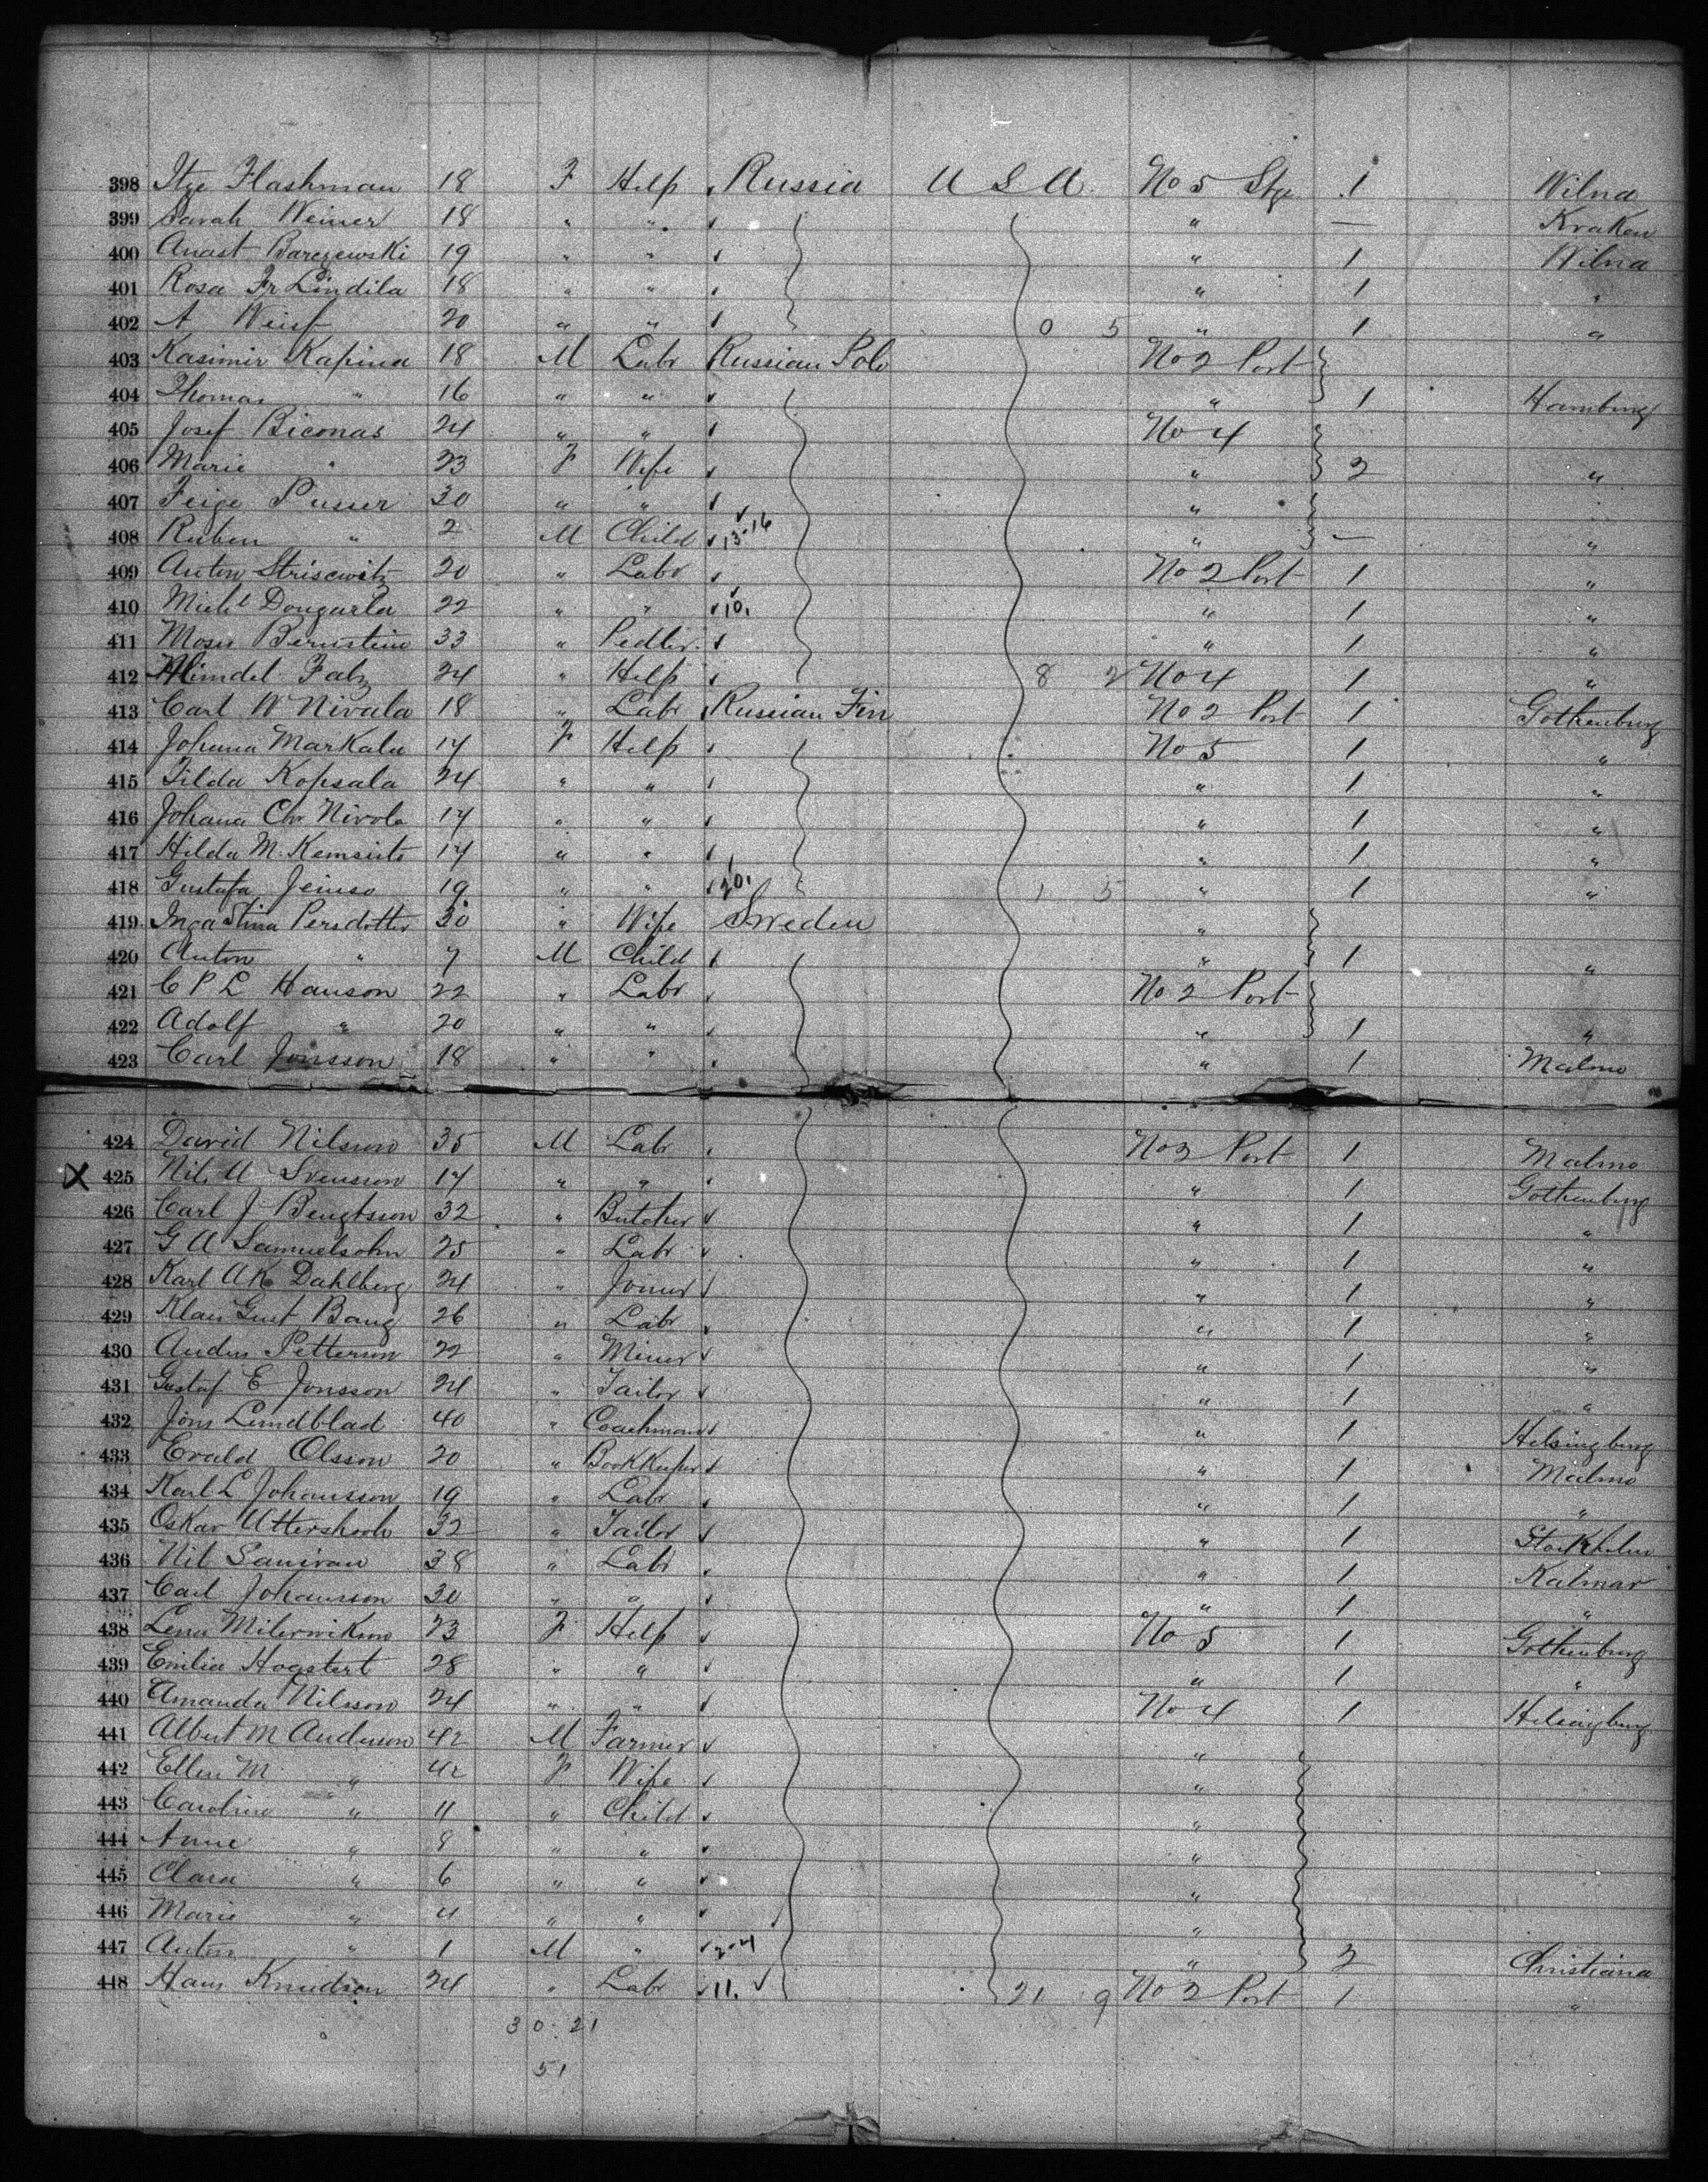 398 Itze Flashman 18 F Help Russia U S A No 5 Stge 1 Wilna
399 Sarah Weiner 18 " " " — Kraken
400 Anast Barczewski 19 " " " 1 Wilna
401 Rosa Fr Lindila 18 " " " 1 "
402 A 20 " " 0 5 " 1 "
403 Kasimir Kapina 18 M Labr Russian Pole No 2 Port
404 Thomas " 16 " " " 1 Hamburg
405 Josef Biconas 24 " " No 4
406 Marie " 23 F Wife " 2 "
407 Feige Pusser 30 " " "
408 Ruben " 2 M Child 13-16 " — "
409 Anton Strisewitz 20 " Labr No 2 Port 1 "
410 Michl Dougarla 22 " " 10. " 1 "
411 Moses Bernstein 33 " Pedler " 1 "
412 24 " Help 8 2 No 4 1 "
413 Carl W Nivala 18 " Labr Russian Fin No 2 Port 1 Gothenburg
414 Johana Markala 17 F Help No 5 1 "
415 Tilda Kopsala 24 " " " 1 "
416 Johana Chr Nivola 17 " " " 1 "
417 Hilda M. 17 " " " 1 "
418 Gustafa 19 " " 20. 1 5 " 1 "
419 Inga Stina Persdotter 30 " Wife Sweden "
420 Anton " 7 M Child " 1 "
421 C P L Hanson 22 " Labr No 2 Port
422 Adolf " 20 " " " 1 "
423 Carl Jonsson 18 " " " 1 Malmo
424 David Nilsson 35 M Labr No 2 Port 1 Malmo
X 425 Nils A Svensson 17 " " " 1 Gothenburg
426 Carl J Bengtsson 32 " Butcher " 1 "
427 G A Samuelsohn 25 " Labr " 1 "
428 Karl A K Dahlberg 24 " Joiner " 1 "
429 Klaus Gust Bang 26 " Labr " 1 "
430 Anders Petterson 22 " Miner " 1 "
431 Gustaf E Jonsson 24 " Tailor " 1 "
432 Jöns Lundblad 40 " Coachman " 1 Helsingburg
433 Evald Olsson 20 " Bookkeeper " 1 Malmo
434 Karl L Johansson 19 " Labr " 1 "
435 Oskar 32 " Tailor " 1 Stockholm
436 Nil 38 " Labr " 1 Kalmar
437 Carl Johansson 30 " " " 1 "
438 Lena 23 F Help No 5 1 Gothenburg
439 Emilia Hogstert 28 " " " 1 "
440 Amanda Nilsson 24 " " No 4 1 Helsingburg
441 Albert M Anderson 42 M Farmer "
442 Ellen M " 42 F Wife "
443 Caroline " 11 " Child "
444 Anne " 8 " " "
445 Clara " 6 " " "
446 Marie " 4 " " "
447 Anton " 1 M " 2-4 " 2 Christiana
448 Hans Knudson 24 " Labr 11. 21 9 No 2 Port 1 "
30. 21
51